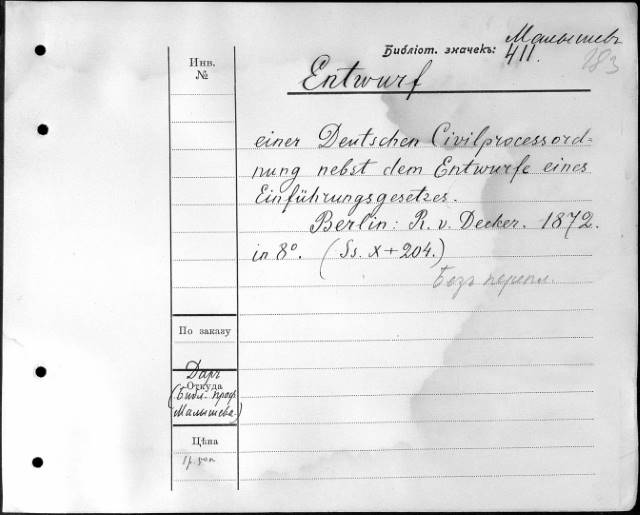 Малышевъ
Библіот. значекъ: 411.
183
Инв.
№
Entwurf
einer Deutschen Civilprocessord=
nung nebst dem Entwurfe eines
Einführungsgesetzes.
Berlin: R. v. Decker. 1872.
in 8°. (Ss. X + 204.)
Безъ перепл.
По заказу
Даръ
Откуда
(Библ. проф.
Малышева)
Цѣна
1 р. 50 к